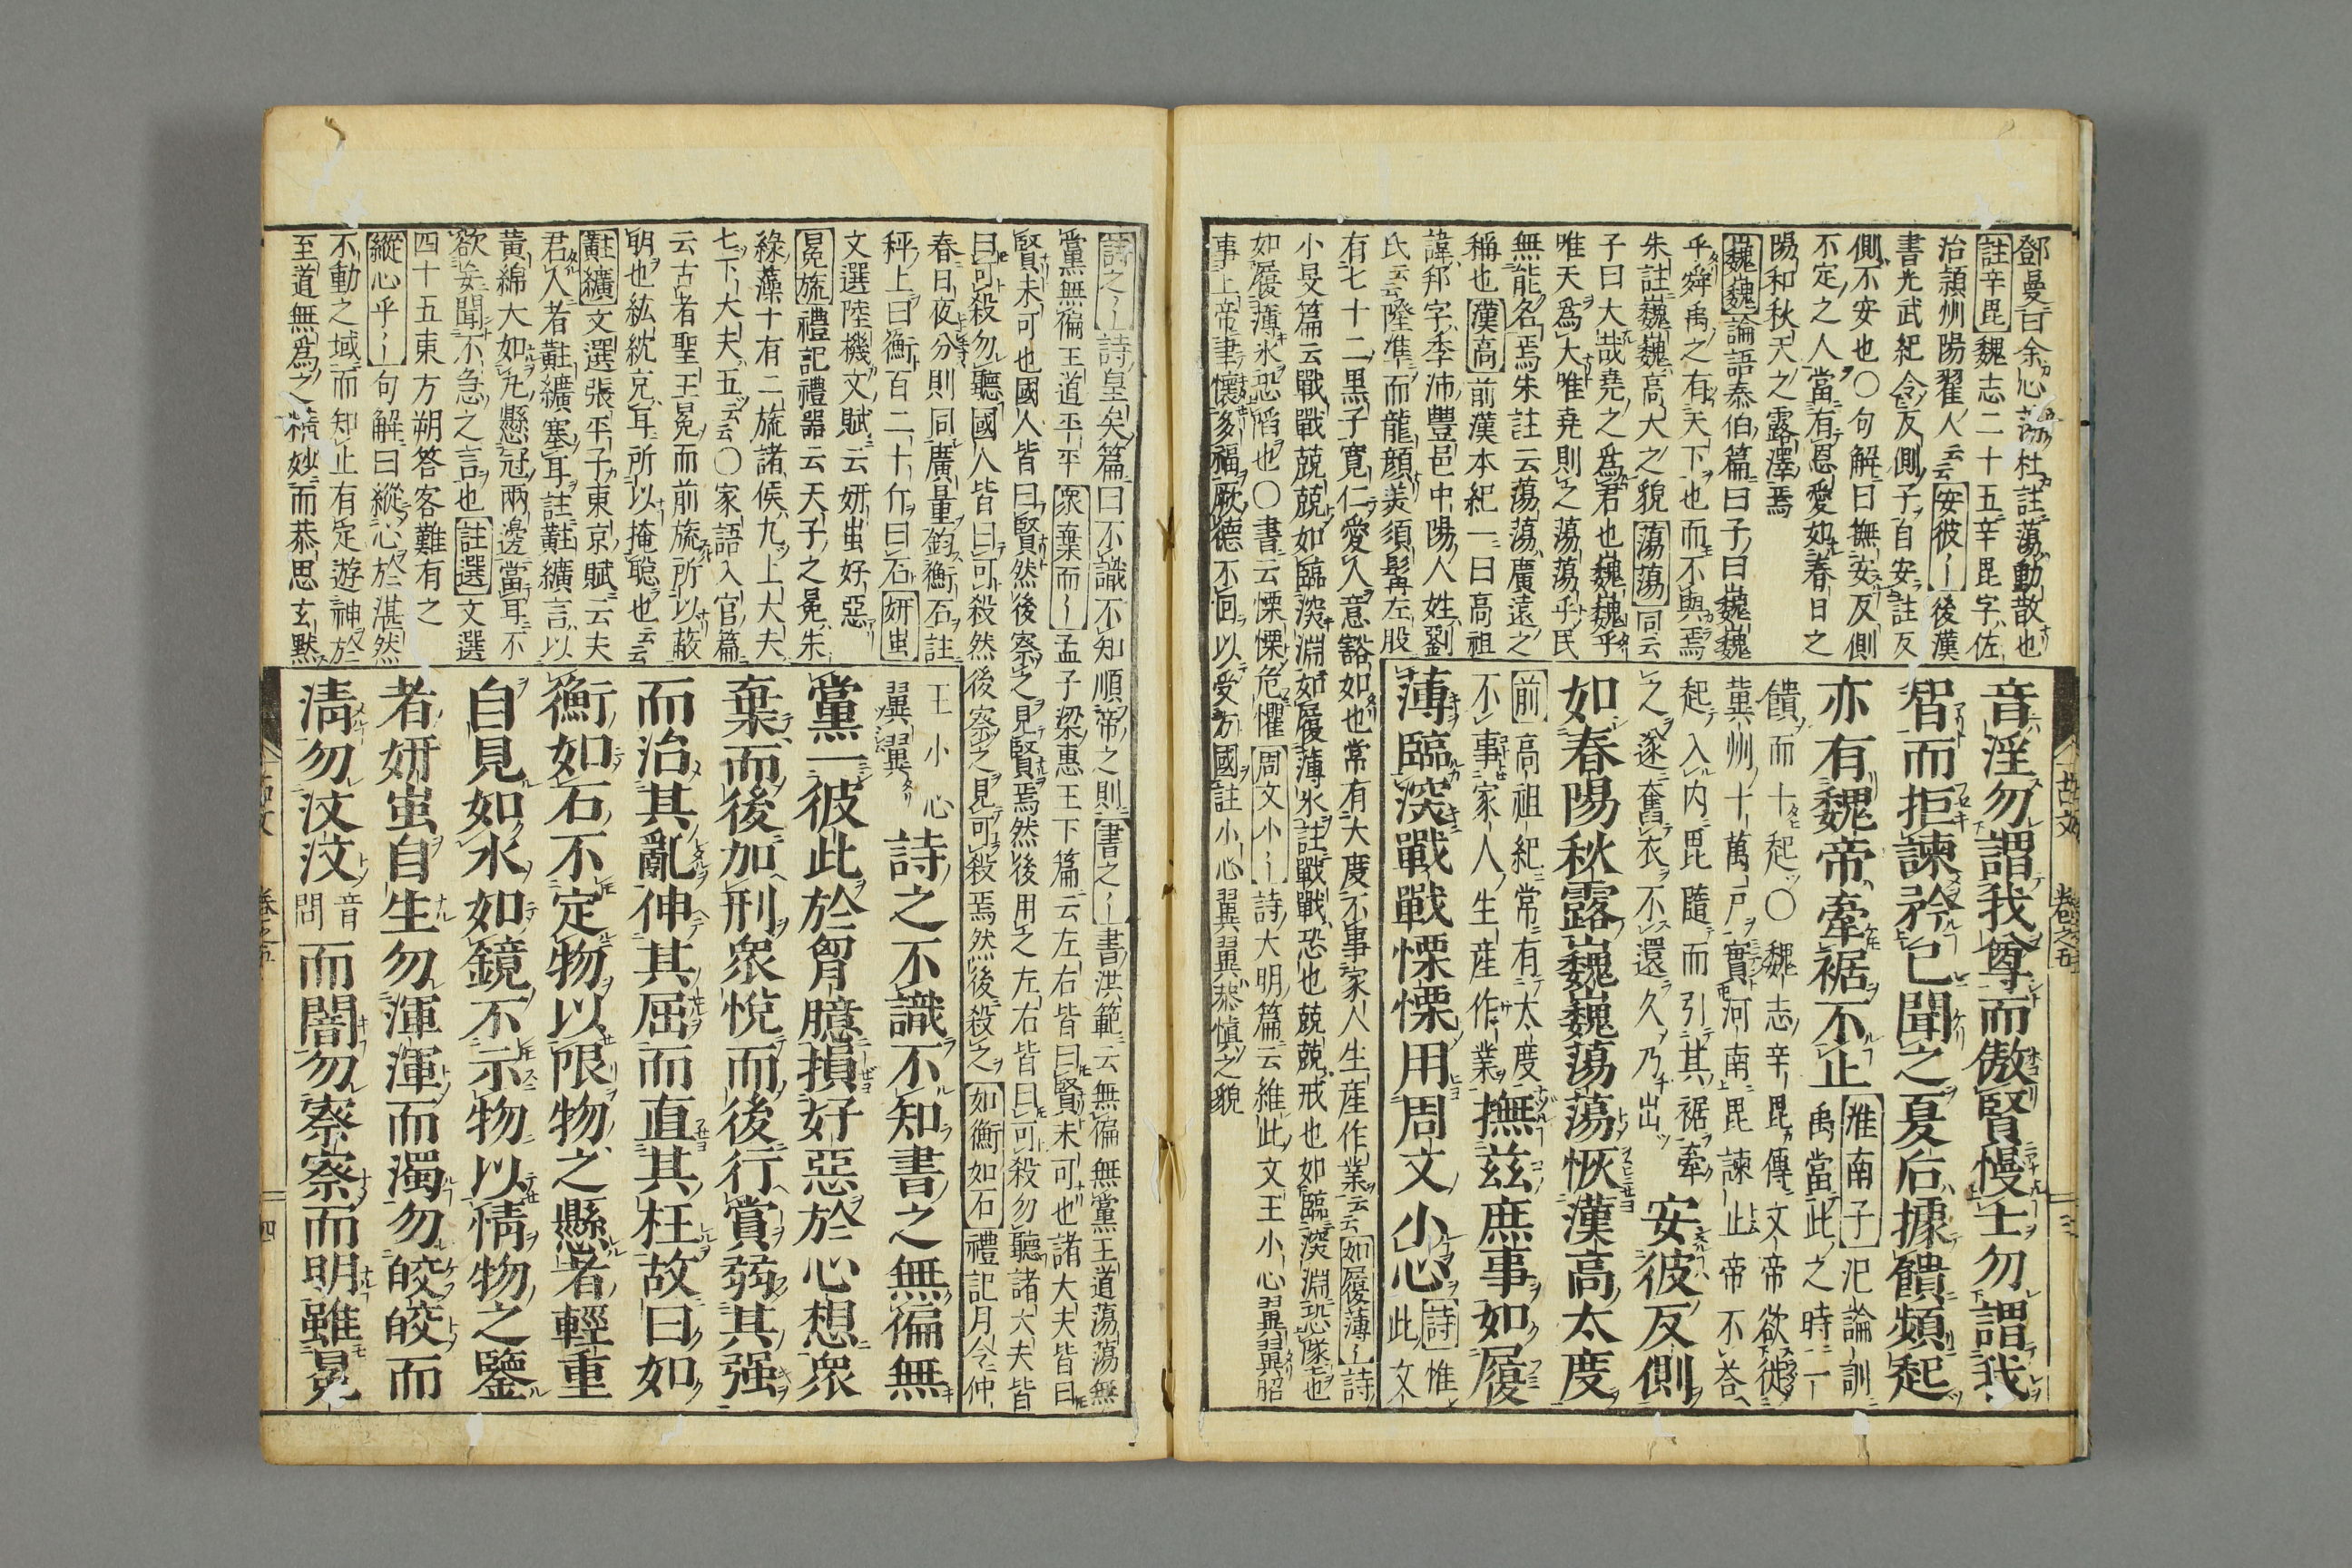 鄧曼曰余心蕩杜註蕩動散也
註辛毘魏志二十五辛毘字佐
治潁州陽翟人云云安彼〡後漢
書光武紀令反側子自安註反
側不安也〇句解曰撫安反側
不定之人當有恩愛如春日之
陽和秋天之露澤焉
巍巍論語泰伯篇曰子曰巍巍
乎舜禹之有天下也而不與焉
朱註巍巍高大之貌蕩蕩同云
子曰大哉堯之為君也巍巍乎
唯天為大唯堯則之蕩蕩乎民
無能名焉朱註云蕩蕩廣遠之
稱也漢高前漢本紀一曰高祖
諱邦字季沛豐邑中陽人姓劉
氏云云隆準而龍顔美須髯左股
有七十二黒子寬仁愛人意豁如也常有大度不事家人生産作業云云如履薄〡詩
小旻篇云戰戰兢兢如臨深淵如履薄氷註戰戰恐也兢兢戒也如臨深淵恐墜也
如履薄氷恐陷也〇書云慄慄危懼周文小〡詩大明篇云維此文王小心翼翼昭
事上帝聿懷多福厥德不回以受方國註小心翼翼恭慎之貌
音淫勿謂我尊而傲賢慢士勿謂我
智而拒諫矜己聞之夏后據饋頻起
亦有魏帝牽裾不止淮南子氾論訓
禹當此之時一
饋而十起〇魏志辛毘傳文帝欲徙
冀州十萬戸實河南毘諫止帝不荅
起入内毘隨而引其裾牽
之遂奮衣不還久乃出安彼反側
如春陽秋露巍巍蕩蕩恢漢高太度
前高祖紀常有大度
不事家人生産作業撫茲庶事如履
薄臨深戰戰慄慄用周文小心詩惟
此文
詩之〡詩皇矣篇曰不識不知順帝之則書之〡書洪範云無偏無黨王道蕩蕩無
黨無偏王道平平衆棄而〡孟子梁惠王下篇云左右皆曰賢未可也諸大夫皆曰
賢未可也國人皆曰賢然後察之見賢焉然後用之左右皆曰可殺勿聽諸大夫皆
曰可殺勿聽國人皆曰可殺然後察之見可殺焉然後殺之如衡如石禮記月令仲
春日夜分則同廣量鈞衡石註
秤上曰衡百二十斤曰石妍蚩
文選陸機文賦云妍蚩好惡
冕旒禮記禮器云天子之冕朱
綠藻十有二旒諸侯九上大夫
七下大夫五云云〇家語入官篇
云古者聖王冕而前旒所以蔽
明也紘紞充耳所以掩聰也云云
黈纊文選張平子東京賦云夫
君人者黈纊塞耳註黈纊言以
黃綿大如丸懸冠兩邊當耳不
欲妄聞不急之言也註選文選
四十五東方朔答客難有之
縱心乎〡句解曰縱心於湛然
不動之域而知止有定遊神於
至道無為之精妙而恭思玄默
王小心
翼翼詩之不識不知書之無偏無
黨一彼此於胷臆損好惡於心想衆
棄而後加刑衆悅而後行賞弱其强
而治其亂伸其屈而直其枉故曰如
衡如石不定物以限物之懸者輕重
自見如水如鏡不示物以情物之鑒
者妍蚩自生勿渾渾而濁勿皎皎而
清勿汶汶音問而闇勿察察而明雖冕
古文　卷之五　三
古文　卷之五　四